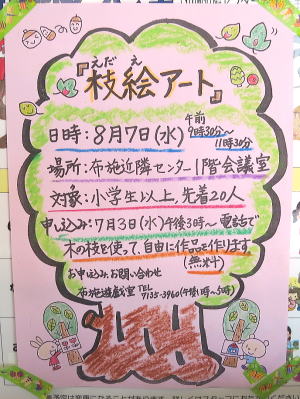 えだ え
『枝絵アート』
日時：8月7日（水）午前9時30分～11時30分
場所：布施近隣センター1階会議室
対象：小学生以上、先着20人
申し込み：7月3日（水）午後3時～電話で
木の枝を使って、自由に作品を作ります
（無料）
お申込み、お問い合わせ
布施遊戯室 TEL 7135-3960（午後1時～5時）